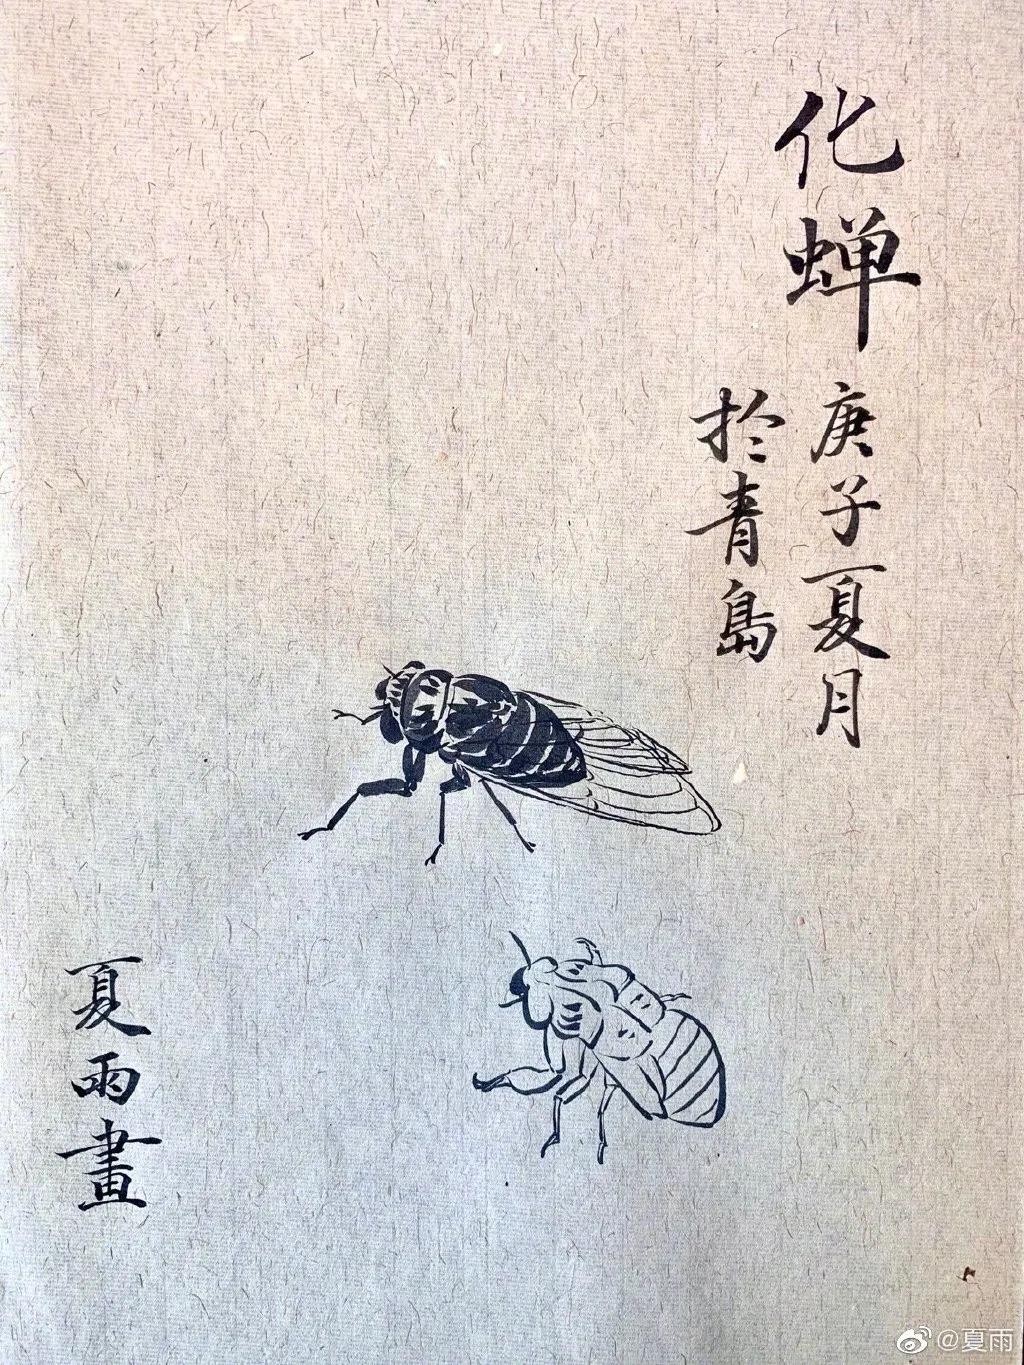 化蝉
庚子夏月
於青島
夏雨畫
@夏雨